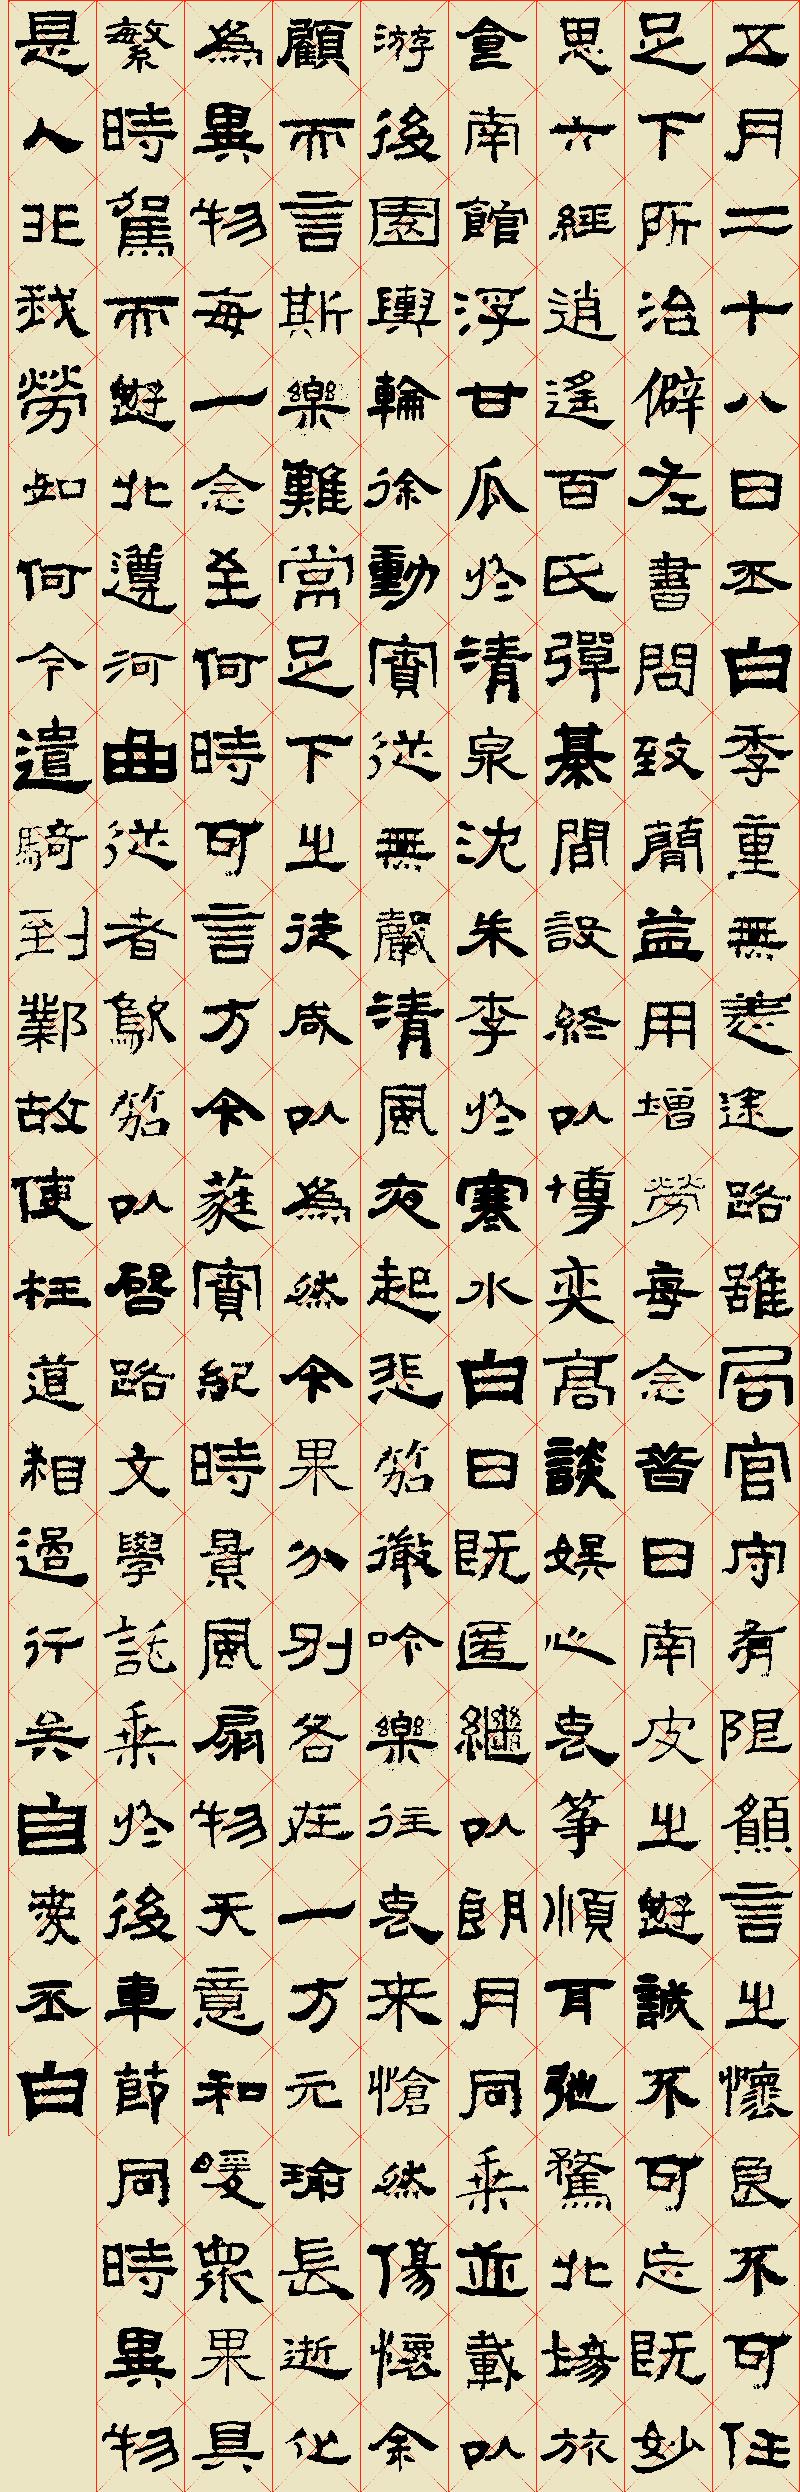 五月二十八日丕白季重無恙途路雖局官守有限願言之懷良不可任
足下所治僻左書問致簡益用增勞每念昔日南皮之遊誠不可忘既妙
思六經逍遙百氏彈棊間設終以博奕高談娛心哀箏順耳弛騖北場旅
食南館浮甘瓜於清泉沈朱李於寒水白日既匿繼以朗月同乘並載以
游後園輿輪徐動賓從無聲清風夜起悲笳微吟樂往哀来愴然傷懷余
顧而言斯樂難常足下之徒咸以為然今果分別各在一方元瑜長逝化
為異物每一念至何時可言方今蕤賓紀時景風扇物天意和暖眾果具
繁時駕而遊北遵河曲從者鳴笳以啓路文學託乘於後車節同時異物
是人非我勞如何今遣騎到鄴故使枉道相過行矣自愛丕白